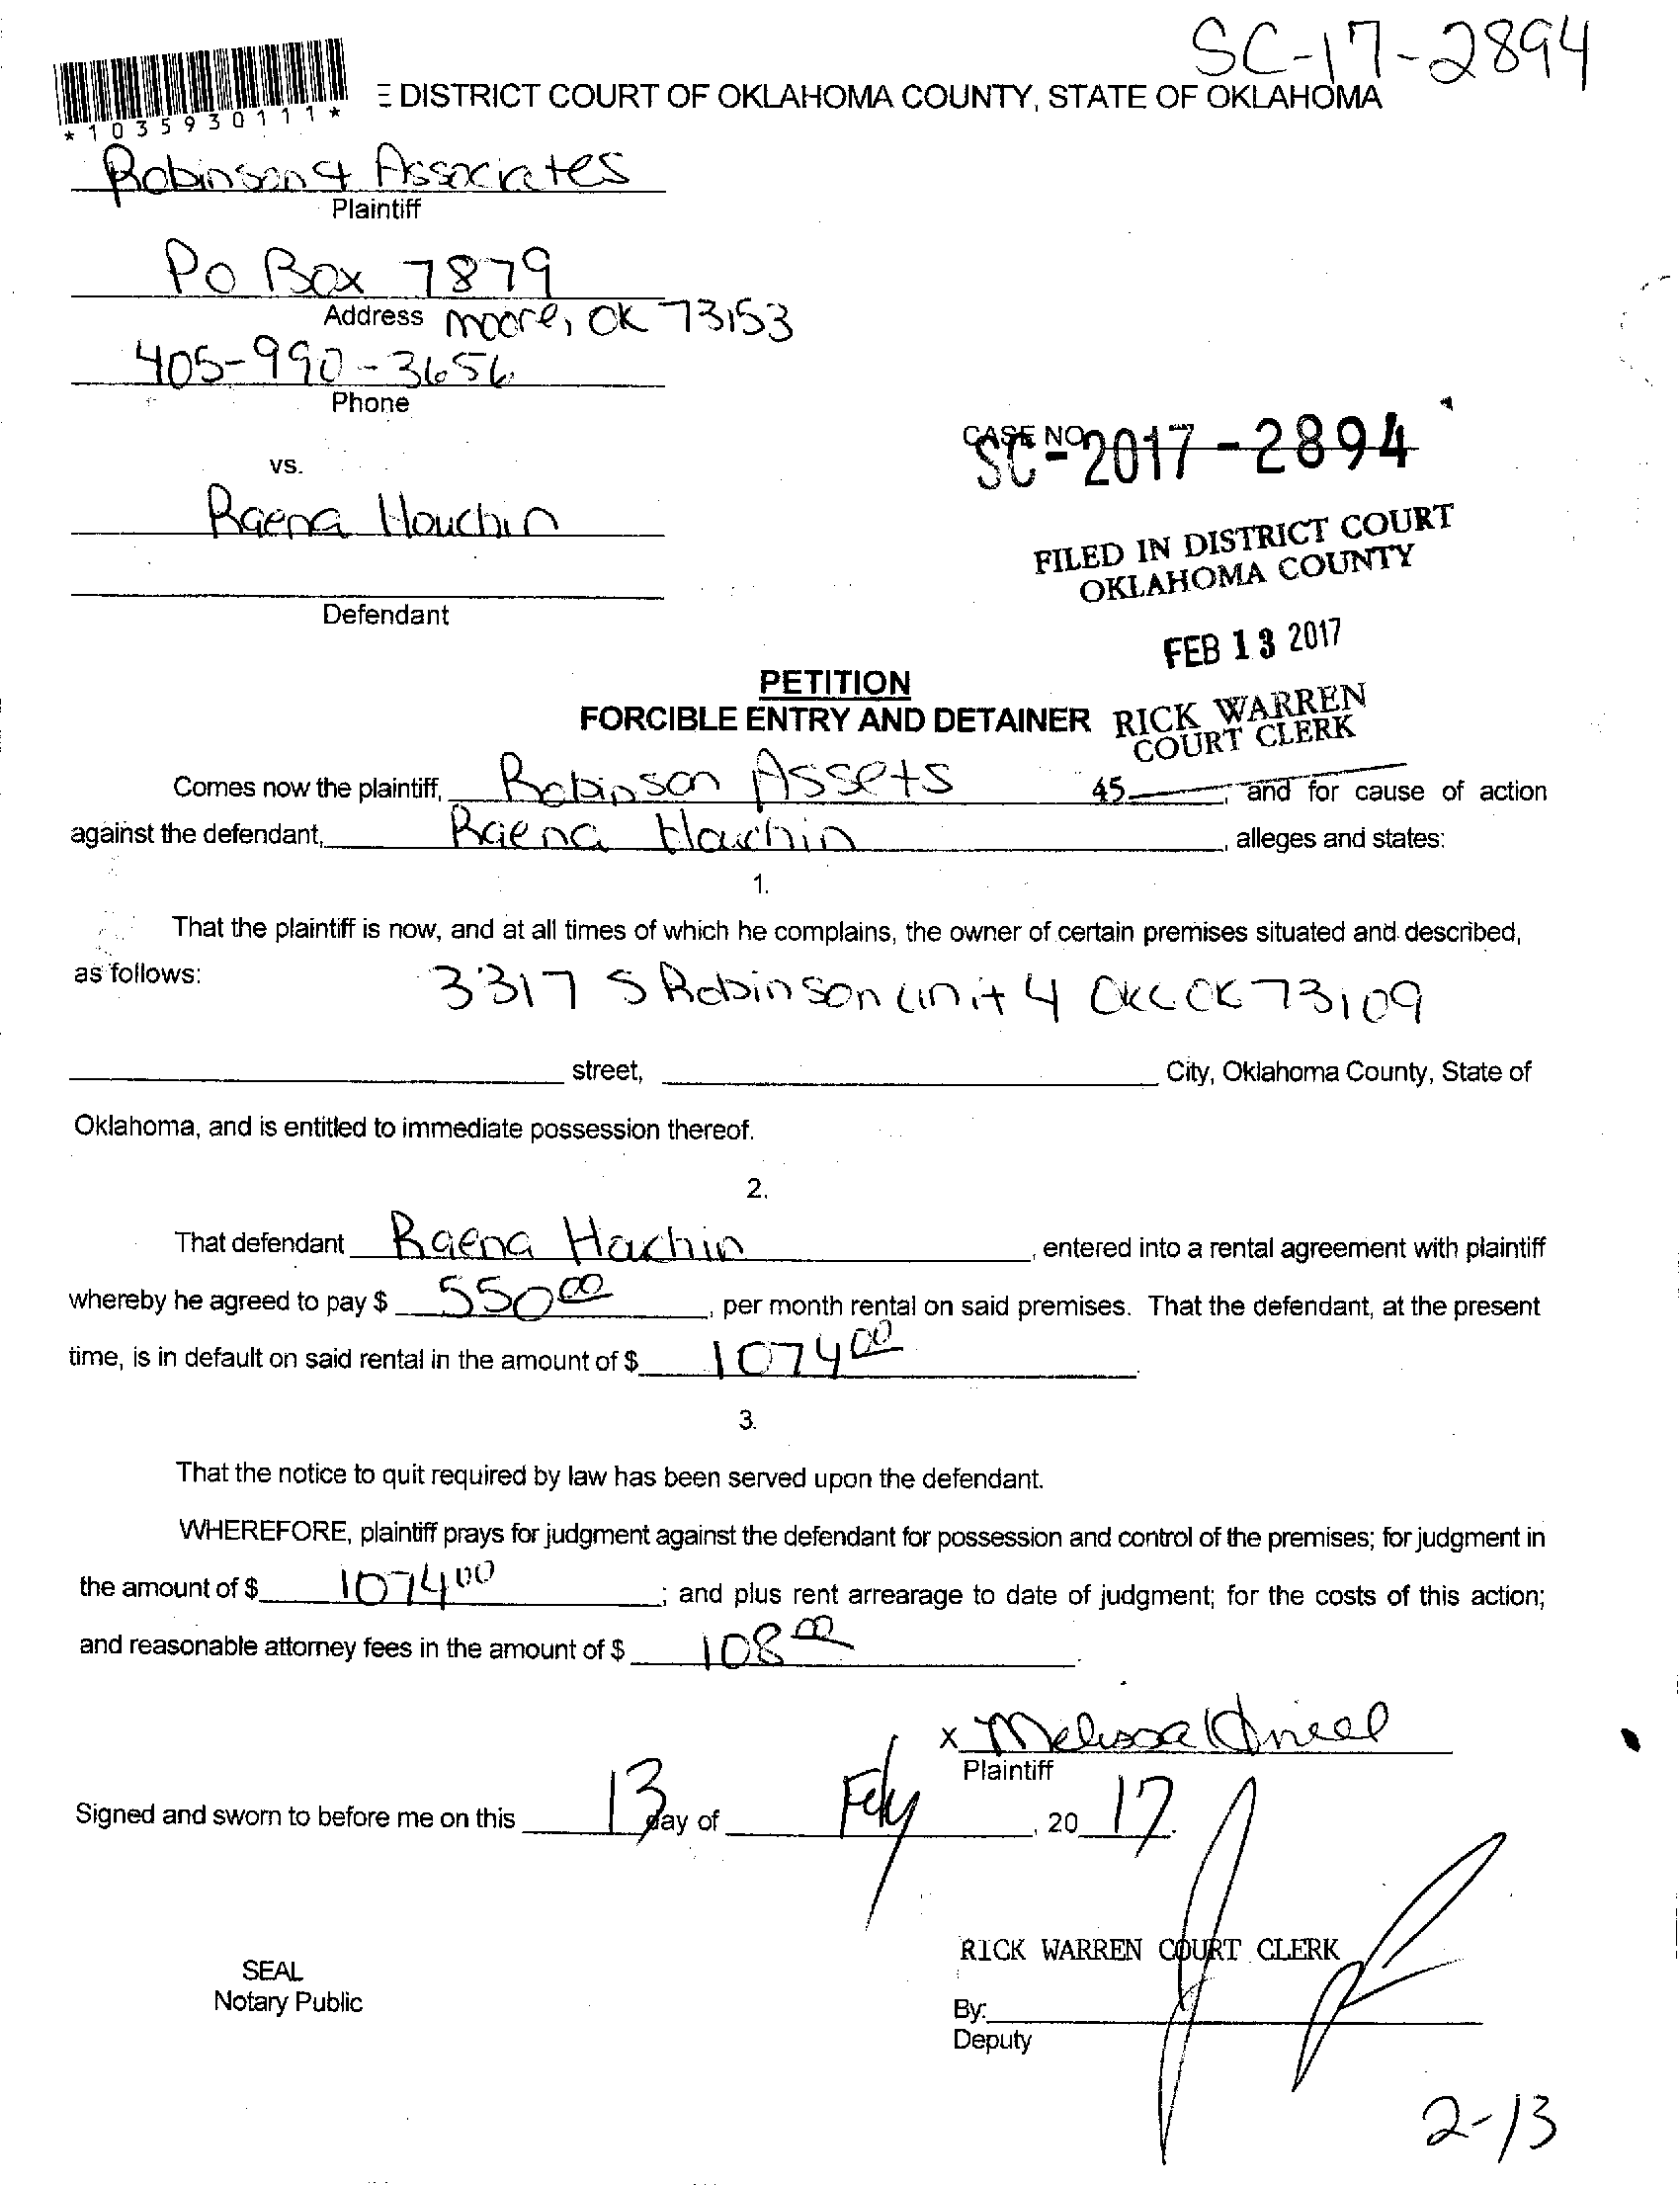 SC-17-2894
*1035930111*
E DISTRICT COURT OF OKLAHOMA COUNTY, STATE OF OKLAHOMA
Robinson & Associates
Plaintiff
Po Box 7879
Address Moore, OK 73153
405-990-3656
Phone
CASE NO.
SC-2017-2894
vs.
Raena Houchin
FILED IN DISTRICT COURT
OKLAHOMA COUNTY
Defendant
FEB 13 2017
PETITION
FORCIBLE ENTRY AND DETAINER
RICK WARREN
COURT CLERK
45
Comes now the plaintiff, Robinson Assets, and for cause of action
against the defendant, Raena Houchin, alleges and states:
1.
That the plaintiff is now, and at all times of which he complains, the owner of certain premises situated and described,
as follows: 3317 S Robinson Unit 4 OKC OK 73109
street, City, Oklahoma County, State of
Oklahoma, and is entitled to immediate possession thereof.
2.
That defendant Raena Houchin, entered into a rental agreement with plaintiff
whereby he agreed to pay $ 550 00, per month rental on said premises. That the defendant, at the present
time, is in default on said rental in the amount of $ 1074 00.
3.
That the notice to quit required by law has been served upon the defendant.
WHEREFORE, plaintiff prays for judgment against the defendant for possession and control of the premises; for judgment in
the amount of $ 1074 00; and plus rent arrearage to date of judgment; for the costs of this action;
and reasonable attorney fees in the amount of $ 108 00.
x Melissa Oneal
Plaintiff
Signed and sworn to before me on this 13 day of Feby, 20 17.
RICK WARREN COURT CLERK
SEAL
Notary Public
By:
Deputy
2-13